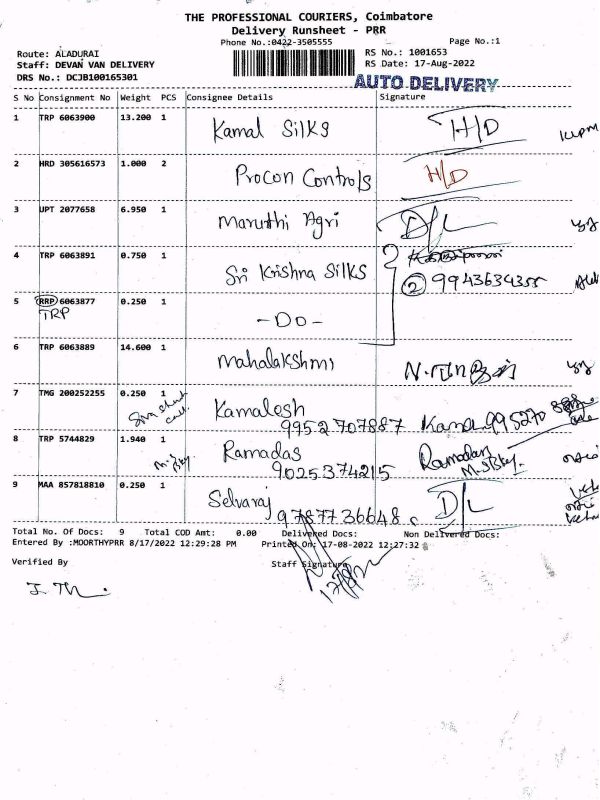 THE PROFESSIONAL COURIERS, Coimbatore
Delivery Runsheet - PRR
Phone No.:0422-3505555
Page No.:1
Route: ALADURAI
RS No.: 1001653
Staff: DEVAN VAN DELIVERY
RS Date: 17-Aug-2022
DRS No.: DCJB100165301
AUTO DELIVERY
S No Consignment No Weight PCS Consignee Details Signature
1 TRP 6063900 13.200 1 Kamal Silks H/D
2 HRD 305616573 1.000 2 Procon Controls H/D
3 UPT 2077658 6.950 1 Maruthi Agri D/L
4 TRP 6063891 0.750 1 Sri Krishna Silks
② 9943634355
5 RRP 6063877 0.250 1 -DO-
TRP
6 TRP 6063889 14.600 1 Mahalakshmi
7 TMG 200252255 0.250 1 Kamalesh
9952707887
8 TRP 5744829 1.940 1 Ramadas
9025374215
9 MAA 857818810 0.250 1 Selvaraj D/L
9787736648
Total No. Of Docs: 9 Total COD Amt: 0.00 Delivered Docs: Non Delivered Docs:
Entered By :MOORTHYPRR 8/17/2022 12:29:28 PM Printed On: 17-08-2022 12:27:32
Verified By Staff Signature